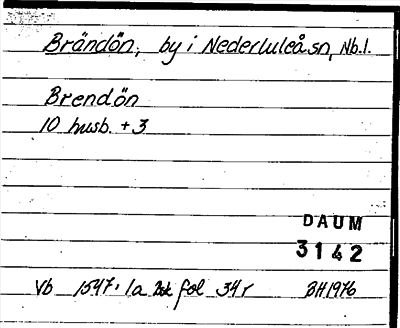 Brändön, by i Nederluleå sn, Nb.l.
Brendön
10 husb. + 3
DAUM
3142
Vb 1547: 1a fol 34r BH1976